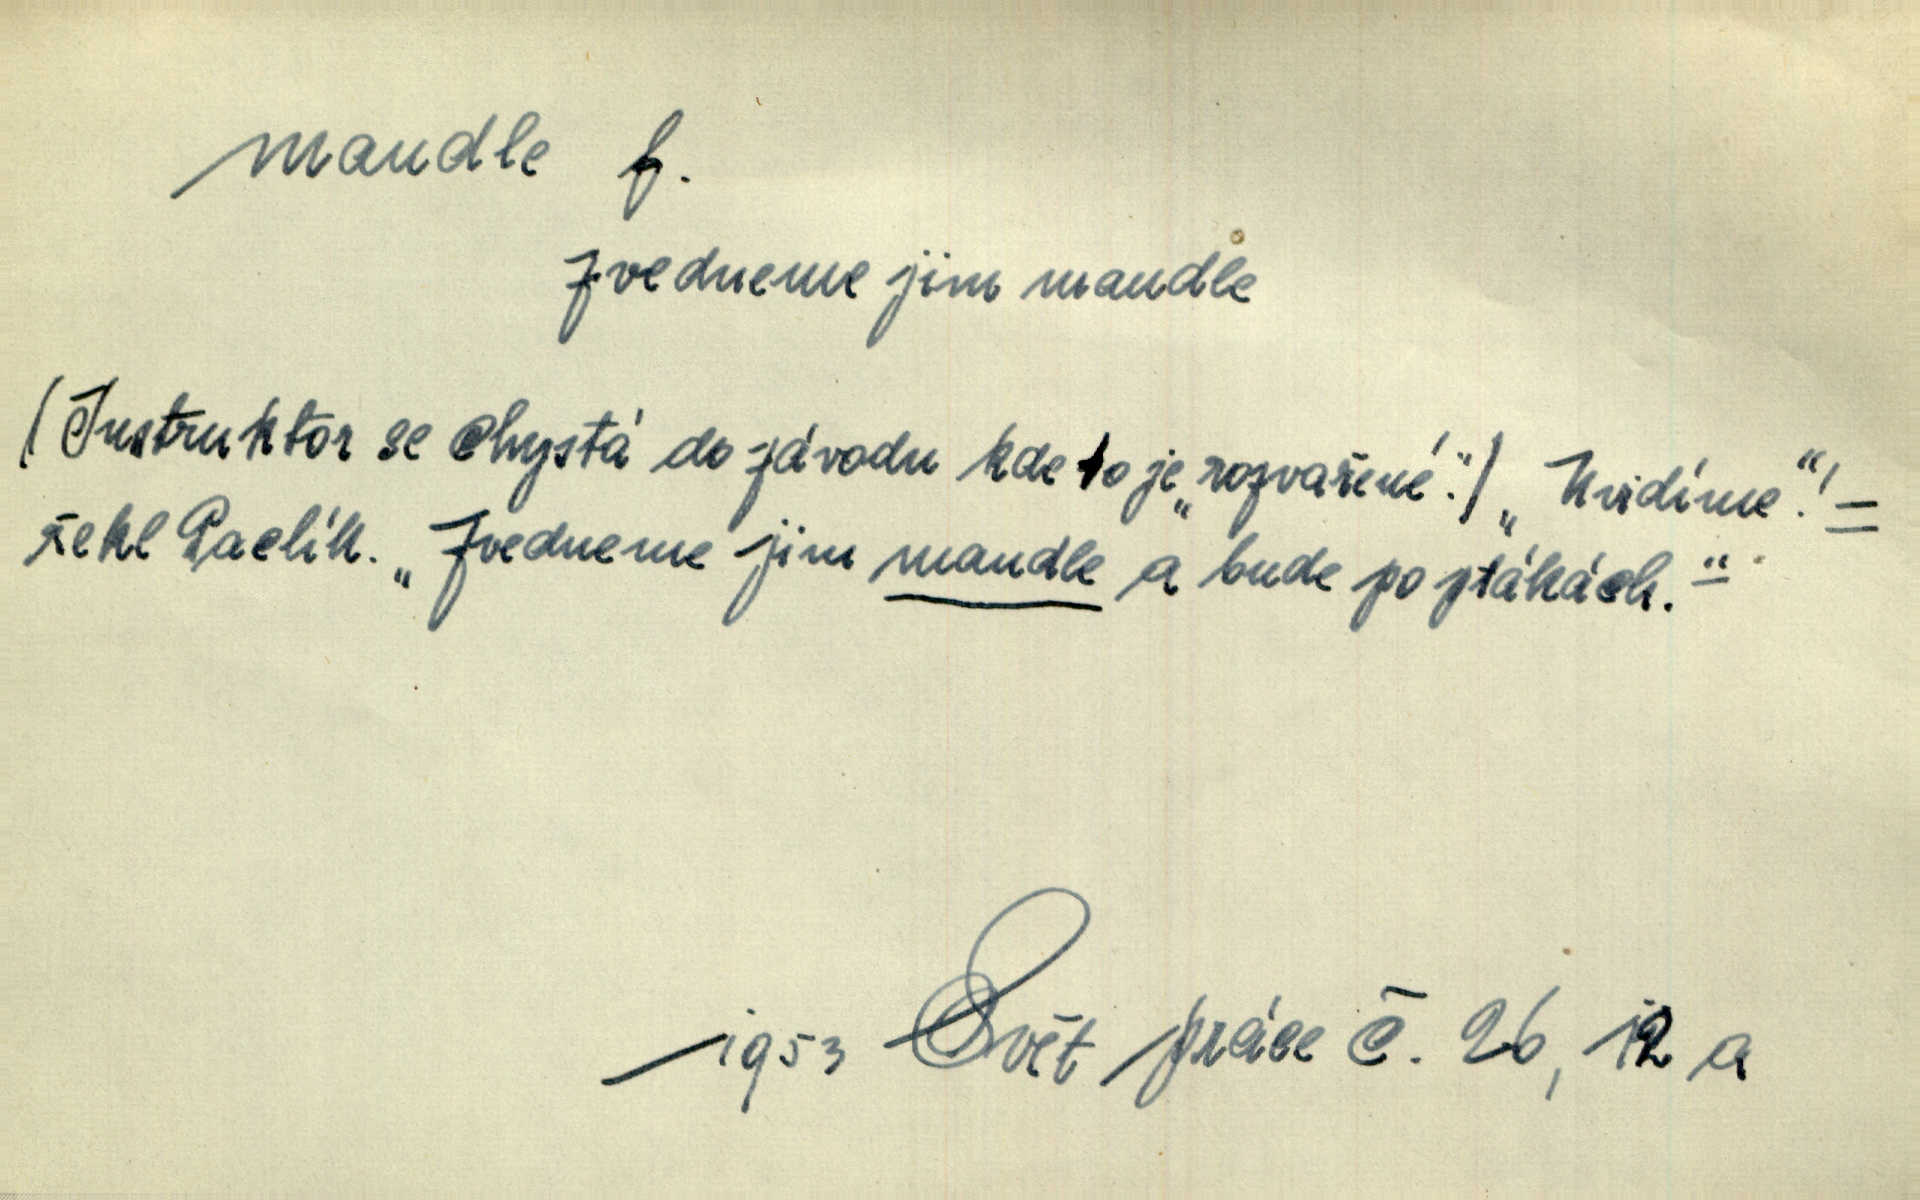 mandle f.
zvedneme jim mandle
(Instruktor se chystá do závodu kde to je „rozvařené“.) „Uvidíme“! =
řekl Paclík. „Zvedneme jim mandle a bude po ptákách.“
1953 Svět práce č. 26, 12 a